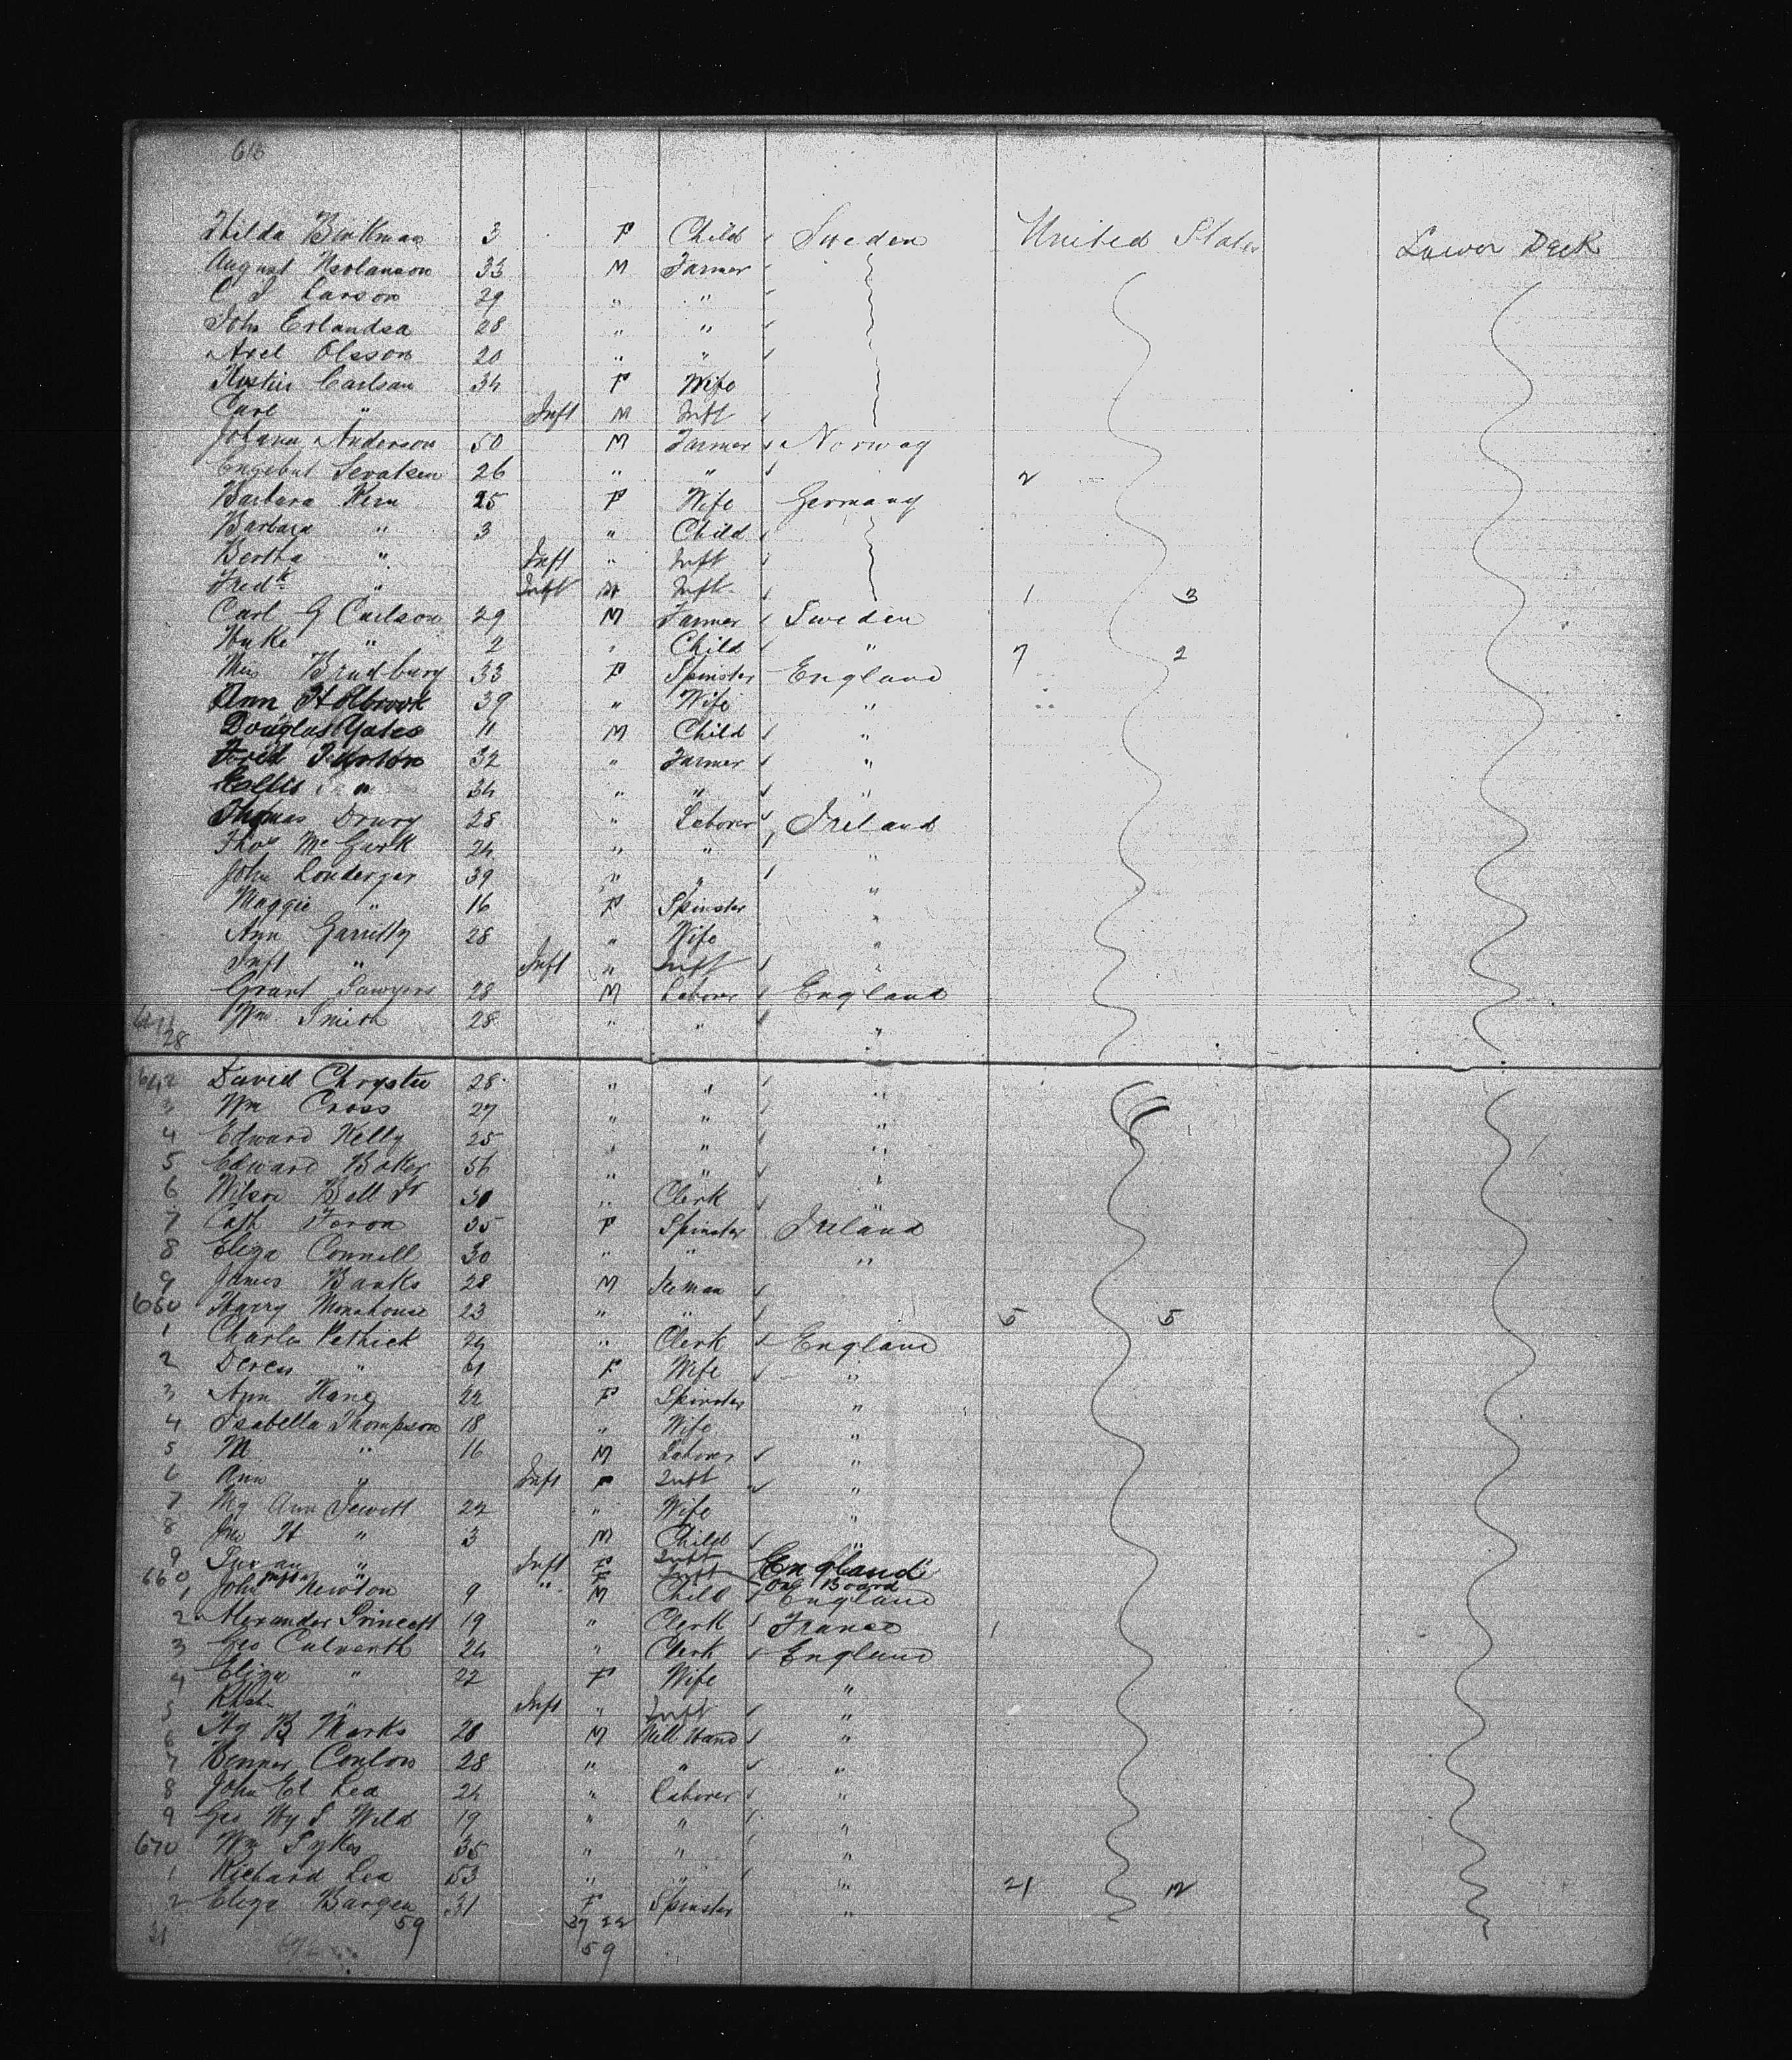 Hilda Binkman 3 F Child Sweden United States Lower Deck
August 33 M Farmer
C J Larson 29 " "
John Erlandsa 28 " "
Axel Olsson 20 " "
Carlson 34 F Wife
Carl " Inft M Inft
Johann Anderson 50 M Farmer Norway
26 " " 2
Barbara Kern 25 F Wife Germany
Barbara " 3 " Child
Bertha " Inft " Inft
Fredk " Inft M Inft 1 3
Carl G Carlson 29 M Farmer Sweden
" 2 " Child " 7 2
Bradbury 33 F Spinster England
Ann Holbrook 39 " Wife "
Douglas Yates 11 M Child "
Fred 32 " Farmer "
" 34 " " "
Thomas Drury 28 " Laborer Ireland
Thos McGurk 24 " " "
John Londerger 39 " " "
Maggie " 16 F Spinster "
Ann Garritty 28 " Wife "
Inft " Inft " Inft "
Grant Sawyers 28 M Laborer England
Wm Smith 28 " " "
28
642 David Chrystie 28 " " "
3 Wm Cross 27 " " "
4 Edward Kelly 25 " " "
5 Edward Baker 56 " " "
6 Wilson Bell Jr 30 " Clerk "
7 Cath Foron 35 F Spinster Ireland
8 Eliza Connell 30 " " "
9 James Banks 28 M
650 Harry Monahouse 23 " " 5 5
1 Charles Pethick 24 " Clerk England
2 " 61 F Wife "
3 Ann Hang 22 F Spinster "
4 Isabella Thompson 18 " Wife "
5 M " 16 M Laborer "
6 Ann " Inft F Inft "
7 My Ann Jewitt 22 " Wife "
8 Jno H " 3 M Child "
9 Susan " Inft F Inft England
660 Infant " F Inft On Board
1 John Newton 9 M Child England
2 Alexander Princett 19 " Clerk France 1
3 Geo Culverth 24 " Clerk England
4 Eliza " 22 F Wife "
5 " Inft " Inft "
6 Hy B Marks 20 M Mill Hand "
7 Conlon 28 " " "
8 John El Lea 24 " Laborer "
9 Geo Hy S Wild 19 " " "
670 Wm Sykes 35 " " "
1 Richard Lea 53 " " " 21 12
2 Eliza Bargen 31 F Spinster "
31 59 37 22
59